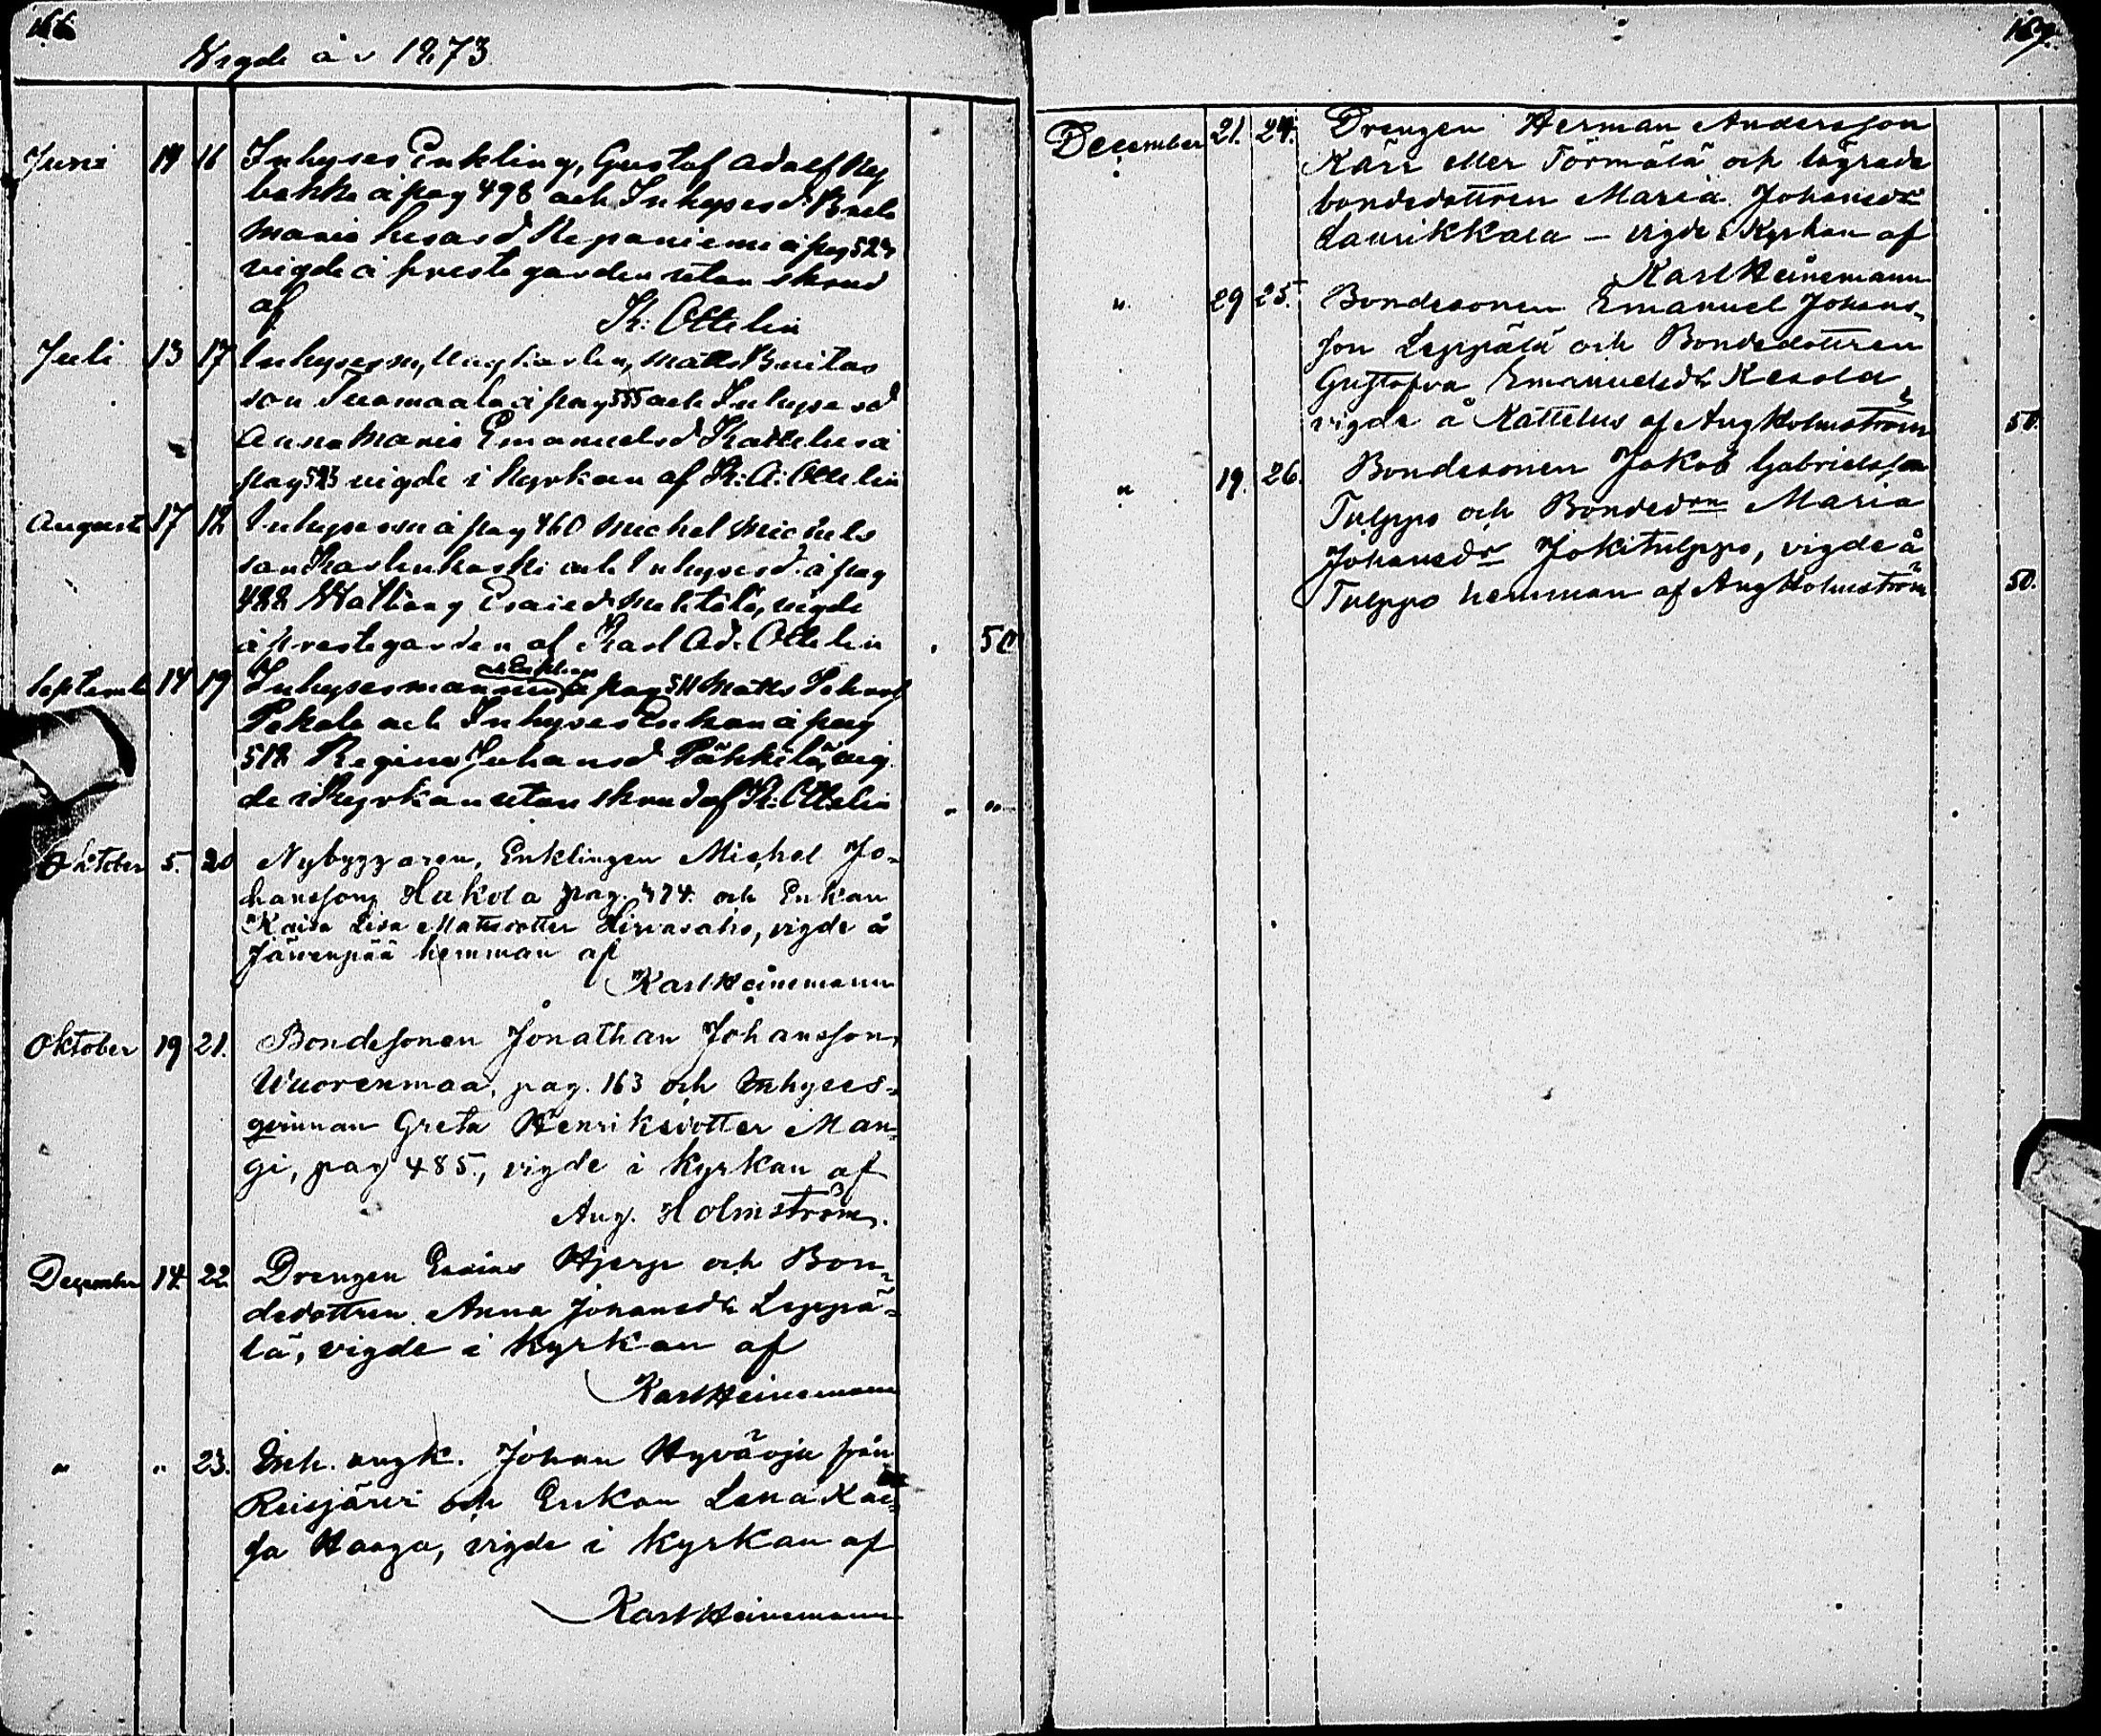 166
Vigde år 1873
Juni 14 16 Inhyses Enkling, Gustaf Adolf Ny
bakka å pag 498 och Inhyses d. Brita
Maria Esaisd Repaniemi å pag 524
vigde å prestegarden utan skrud
af
K. Ottelin
Juli 13 17 Inhysesm, Ungkarlen, Matts Britas
son Tuomaala å pag 555 och Inhyses d
Anna Maria Emanuelsd Kattelus å
pag 523 vigde i Kyrkan af K. A. Ottelin
August 17 18 Inhysesm å pag 460 Michel Michels
son Kaslenkoski och Inhysesd. å pag
488 Walborg Esaied Mektälä, vigde
å prestegarden af Karl Ad. Ottelin 50
och Enklingen
September 14 19 Inhysesmannen å pag 511 Matts Johansf
Pekola och Inhyses Enkan å pag
518 Regina Johansd Pähkilä, vig
de i Kyrkan utan skrud af K. Ottelin " "
Oktober 5. 20 Nybyggaren, Enklingen Michel Jo-
hansson Hakola pag. 474. och Enkan
Kaisa Lisa Mattsdotter Hirvasaho, vigde å
Järvenpää hemman af
Karl Heinemann
Oktober 19 21. Bondesonen Jonathan Johansson
Wuorenmaa, pag. 163 och Inhyses-
qvinnan Greta Henriksdotter Man-
gi, pag 485., vigde i kyrkan af
Aug. Holmström.
December 14. 22 Drengen Esaias Hjerp och Bon-
dedottren Anna Johansdr Leppä-
lä, vigde i kyrkan af
Karl Heinemann
" " 23. Inh. ungk. Johan Hyväoja från
Reisjärvi och Enkan Lena Kai-
sa Haaga, vigde i kyrkan af
Karl Heinemann
167.
December 21. 24. Drengen Herman Andersson
Kärr eller Törmälä och lägrade
bondedottren Maria Johansdr
Laurikkala – vigde i Kyrkan af
Karl Heinemann
" 29 25. Bondesonen Emanuel Johans-
son Leppälä och Bondedottren
Gustafva Emanuelsdr Kesola,
vigde å Kattelus af Aug Holmström 50.
" 19. 26. Bondesonen Jakob Gabrielsson
Tulppo och Bondedrn Maria
Johansdr Jokitulppo, vigde å
Tulppo hemman af Aug Holmström 50.